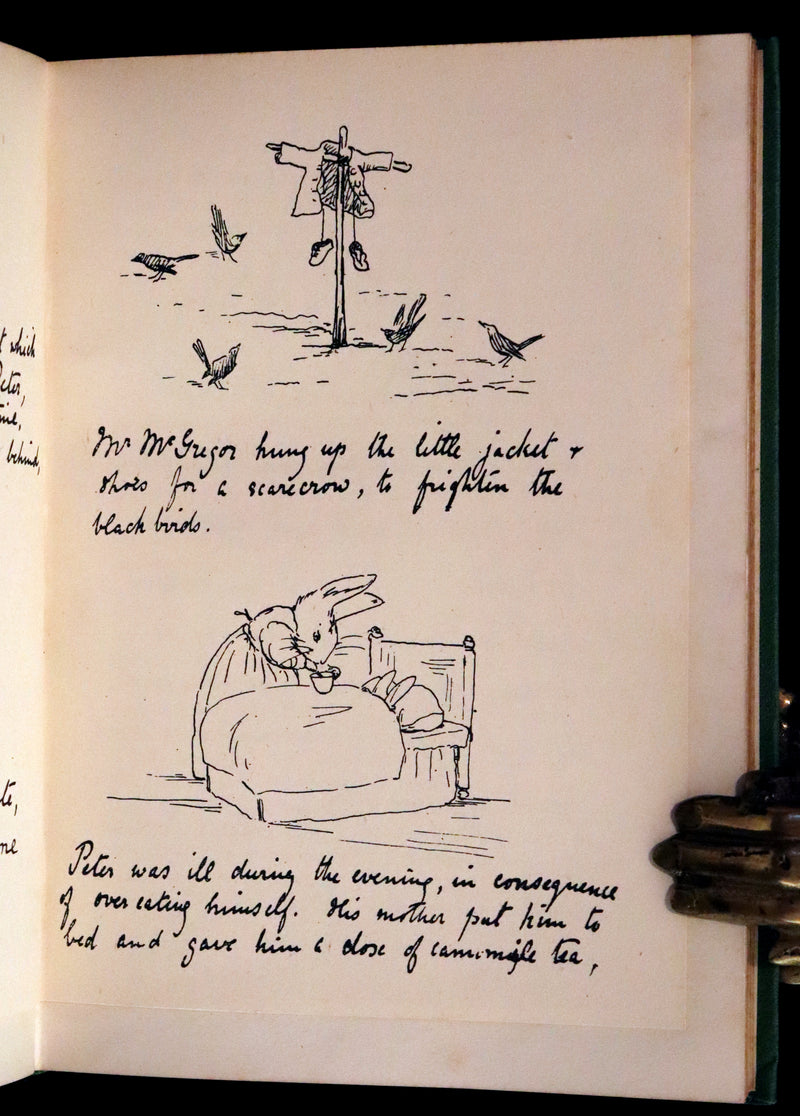 t which
Peter,
me,
behind,
te,
me
Mr McGregor hung up the little jacket +
shoes for a scarecrow, to frighten the
black birds.
Peter was ill during the evening, in consequence
of over eating himself. His mother put him to
bed and gave him a dose of camomile tea,